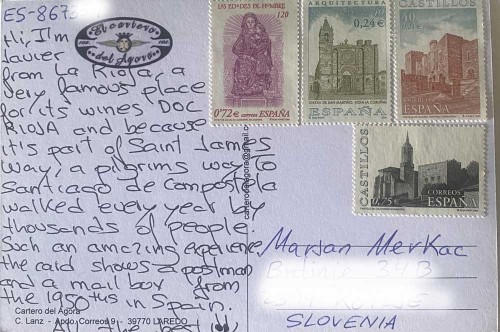 ES-867
Hi, I'm
Javier
from La Rioja, a
very famous place
for its wines DOC
RIOJA and because
it's part of Saint James
Way, a pilgrims way to
Santiago de Compostela
walked every year by
thousands of people.
Such an amazing experience
the card shows a postman
and a mail box from
the 1950tus in Spain
All the best!!
El cartero
del Agora
Cartero del Agora
C. Lanz - Apdo. Correos 9 - 39770 LAREDO
carterodelagora@gmail.c
LAS EDADES DE HOMBRE
120
0'72€ correos ESPAÑA
ARQUITECTURA
0,24€
ESPAÑA
CASTILLOS
ESPAÑA
CASTILLOS
0,75€
CORREOS
ESPAÑA
Marjan Merkac
34B
SLOVENIA